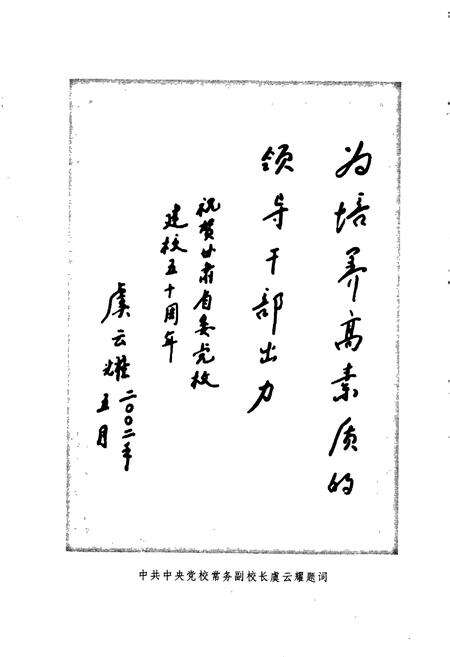 为培养高素质的
领导干部出力
祝贺甘肃省委党校
建校五十周年
虞云耀
二〇〇二年
五月
中共中央党校常务副校长虞云耀题词